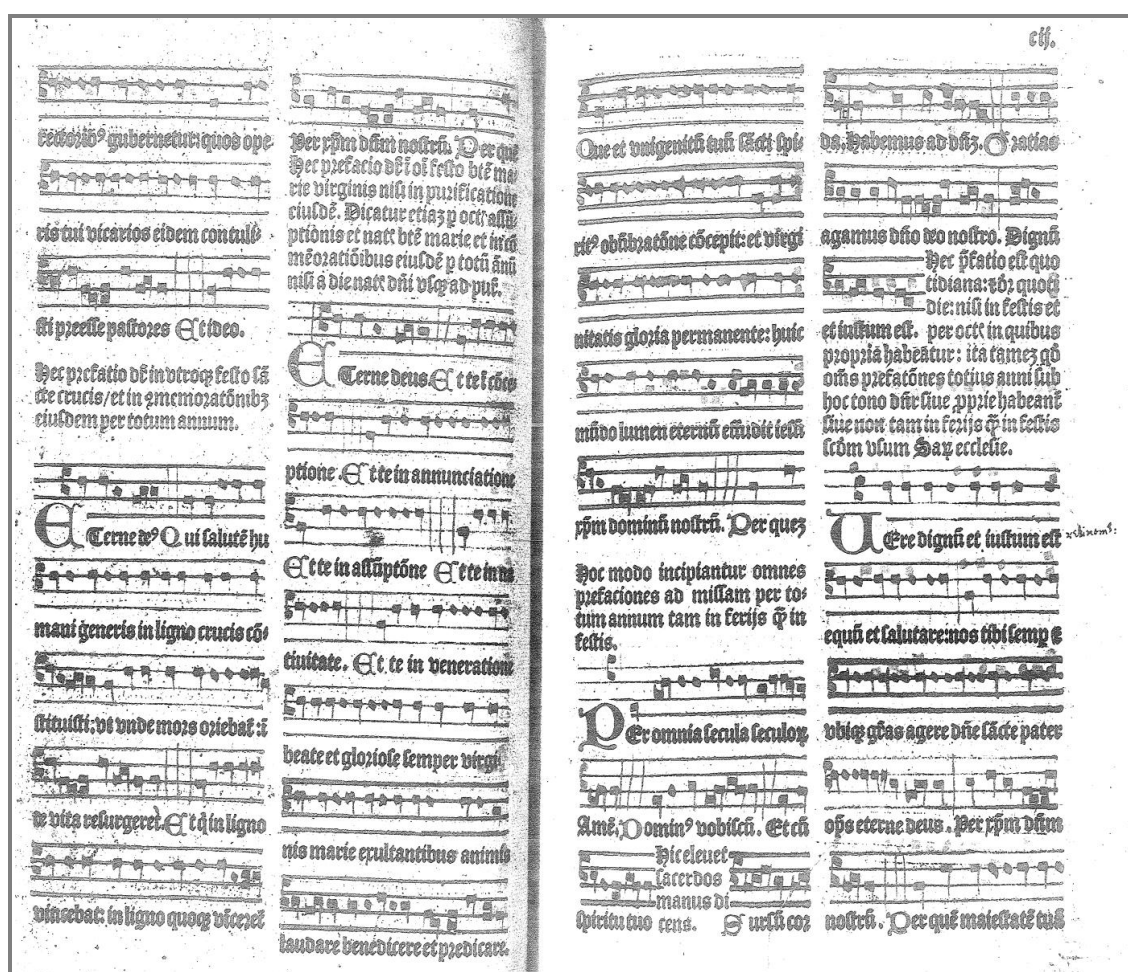 rectorib⁹ gubernetur: quos ope
ris tui vicarios eidem contuli
sti preesse pastores Et ideo.
Hec prefatio dr̄ in vtroqȝ festo sā
cte crucis/et in ꝯmemoratōnibȝ
eiusdem per totum annum.
ETerne de⁹ Qui salutē hu
mani gēneris in ligno crucis cō
stituisti: vt vnde mors oriebat̄: ī
de vita resurgeret. Et q̇ in ligno
vincebat: in ligno quoqȝ vinceret̄
Per xp̄m dn̄m nostrū. Per quē
Hec prefatio dr̄ ī oī festo btē ma
rie virginis nisi in purificatione
eiusdē. Dicatur etiaȝ ꝑ oct̄ assū
ptionis et nat̄ btē marie et in cō
mēoratiōibus eiusdē ꝑ totū ānū
nisi a die nat̄ dn̄i vsqȝ ad pur̄.
ETerne deus. Et te ī cōce
ptione. Et te in annunciatione
Et te in assūptōne Et te in na
tiuitate. Et te in veneratione
beate et gloriose semper virgi
nis marie exultantibus animis
laudare benedicere et predicare.
cij.
Que et vnigenitū tuū sācti spi
rit⁹ obūbratōne cōcepit: et virgi
nitatis gloria permanente: huic
mūdo lumen eternū effudit iesū
xp̄m dominū nostrū. Per queȝ
Hoc modo incipiantur omnes
prefaciones ad missam per to
tum annum tam in ferijs q̄ in
festis.
PEr omnia secula seculoꝝ
Amē. Domin⁹ vobiscū. Et cū
Hic eleuet
sacerdos
manus di
spiritu tuo cens. Sursū cor
da. Habemus ad dn̄ȝ. Gratias
agamus dn̄o deo nostro. Dignū
Hec p̄fatio est quo
tidiana: ⁊ dr̄ quoti
die: nisi in festis et
et iustum est. per oct̄ in quibus
propria habeātur: ita tameȝ qd̄
om̄s prefatōnes totius anni sub
hoc tono dn̄r siue ꝓprie habeant̄
siue non tam in ferijs q̄ in festis
scd̄m vsum Saꝝ ecclesie.
UEre dignū et iustum est
equū et salutare: nos tibi semꝑ ⁊
vbiqȝ gr̄as agere dn̄e sācte pater
op̄s eterne deus. Per xp̄m dn̄m
nostrū. Per quē maiestatē tuā